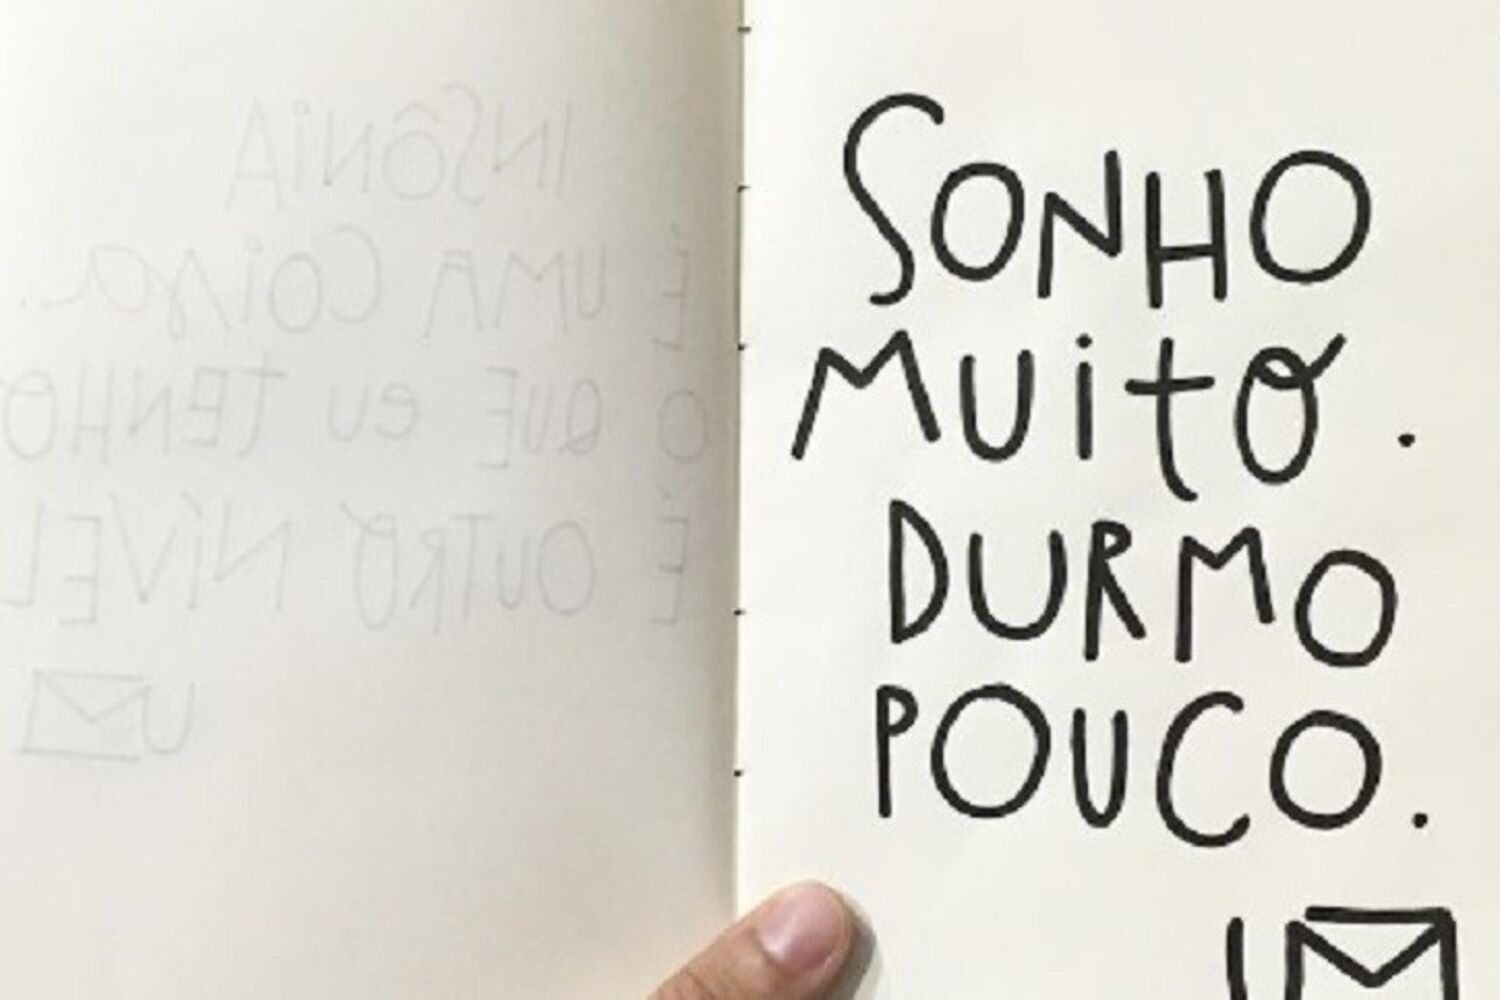 INSÔNIA
É UMA COISA.
O QUE EU TENHO
É OUTRO NÍVEL
SONHO
MUITO.
DURMO
POUCO.